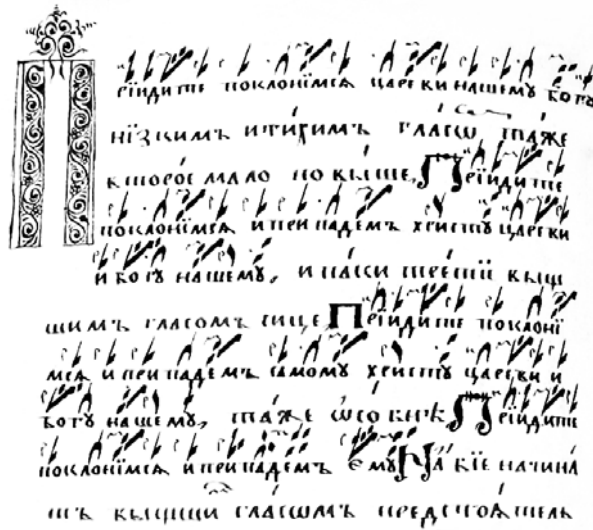 Прїидите поклонїмсѧ царєви нашемꙋ богꙋ
нїзкимъ и тїхимъ гласѡ таже
второє мало повыше, Прїидите
поклонїмсѧ и припадемъ христꙋ цареви
и богꙋ нашемꙋ, и паки третїє выш
шимъ гласомъ сице Прїидите поклонї
мсѧ и припадемъ самомꙋ христꙋ цареви и
богꙋ нашемꙋ, таже ѡсобнѣ Прїидите
поклонїмсѧ и припадемъ ємꙋ
тъ гласѡмъ предстоѧтель